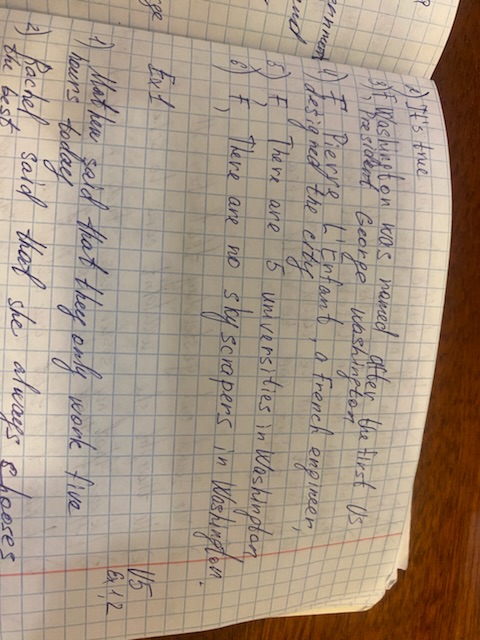 2) It's true
3) F Washington was named after the first US
President George Washington
4) F Pierre L'Enfant, a French engineer,
designed the city
5) F There are 5 universities in Washington
6) F, There are no skyscrapers in Washington.
U5
Ex 1,2
Ex 1
1) Mathew said that they only work five
hours today
2) Rachel said that she always chooses
the best